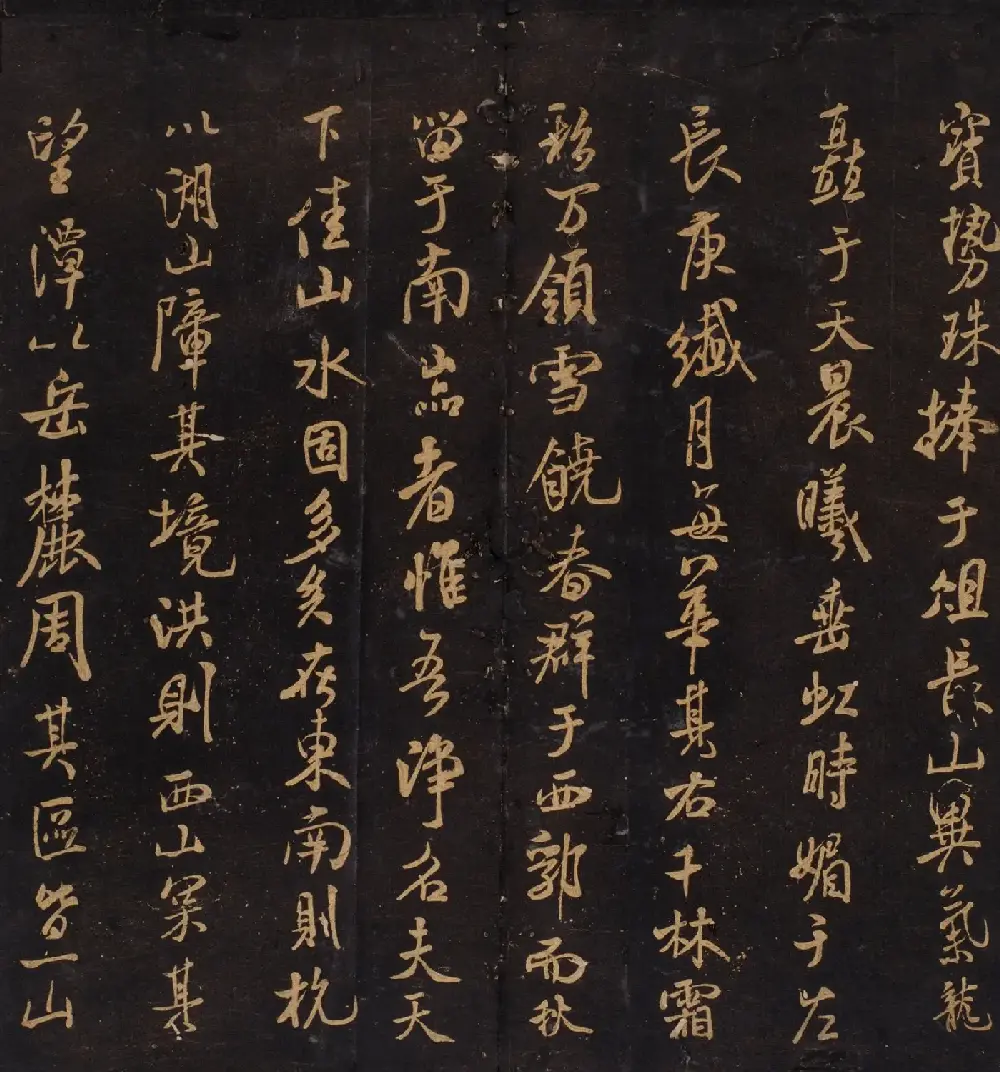 寶勢珠捧于俎長山異氣龍
矗于天晨曦垂虹時媚于左
長庚纖月每華其右千林霜
彩万領雪饒春群于西郭而秋
留于南嵓者惟吾淨名夫天
下佳山水固多矣在東南則杭
以湖山障其境洪則西山累其
望潭以岳麓周其區皆一山